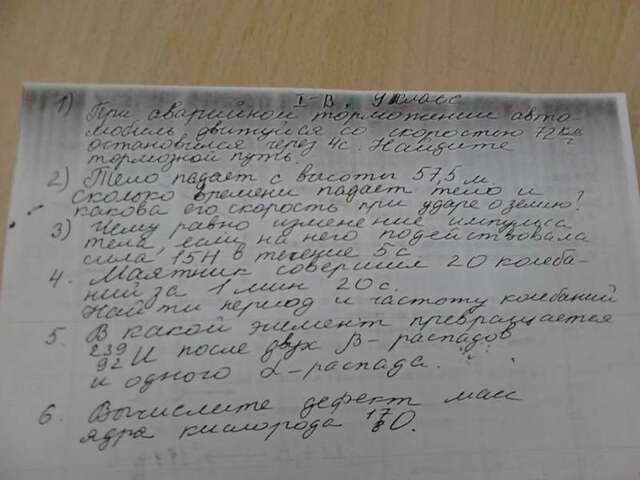 I-В. 9 класс
1) При аварийном торможении авто-
мобиль, двигуийся со скоростью 72 км/ч
остановился через 4с. Найдите
тормозной путь.
2) Тело падает с высоты 57,5 м.
Сколько времени падает тело и
какова его скорость при ударе о землю?
3) Чему равно изменение импульса
тела, если на него подействовала
сила 15Н в течение 5с
4. Маятник совершил 20 колеба-
ний за 1 мин 20с.
Найти период и частоту колебаний
5. В какой элемент превращается
²³⁹₉₂U после двух β-распадов
и одного α-распада.
6. Вычислите дефект масс
ядра кислорода ¹⁷₈O.